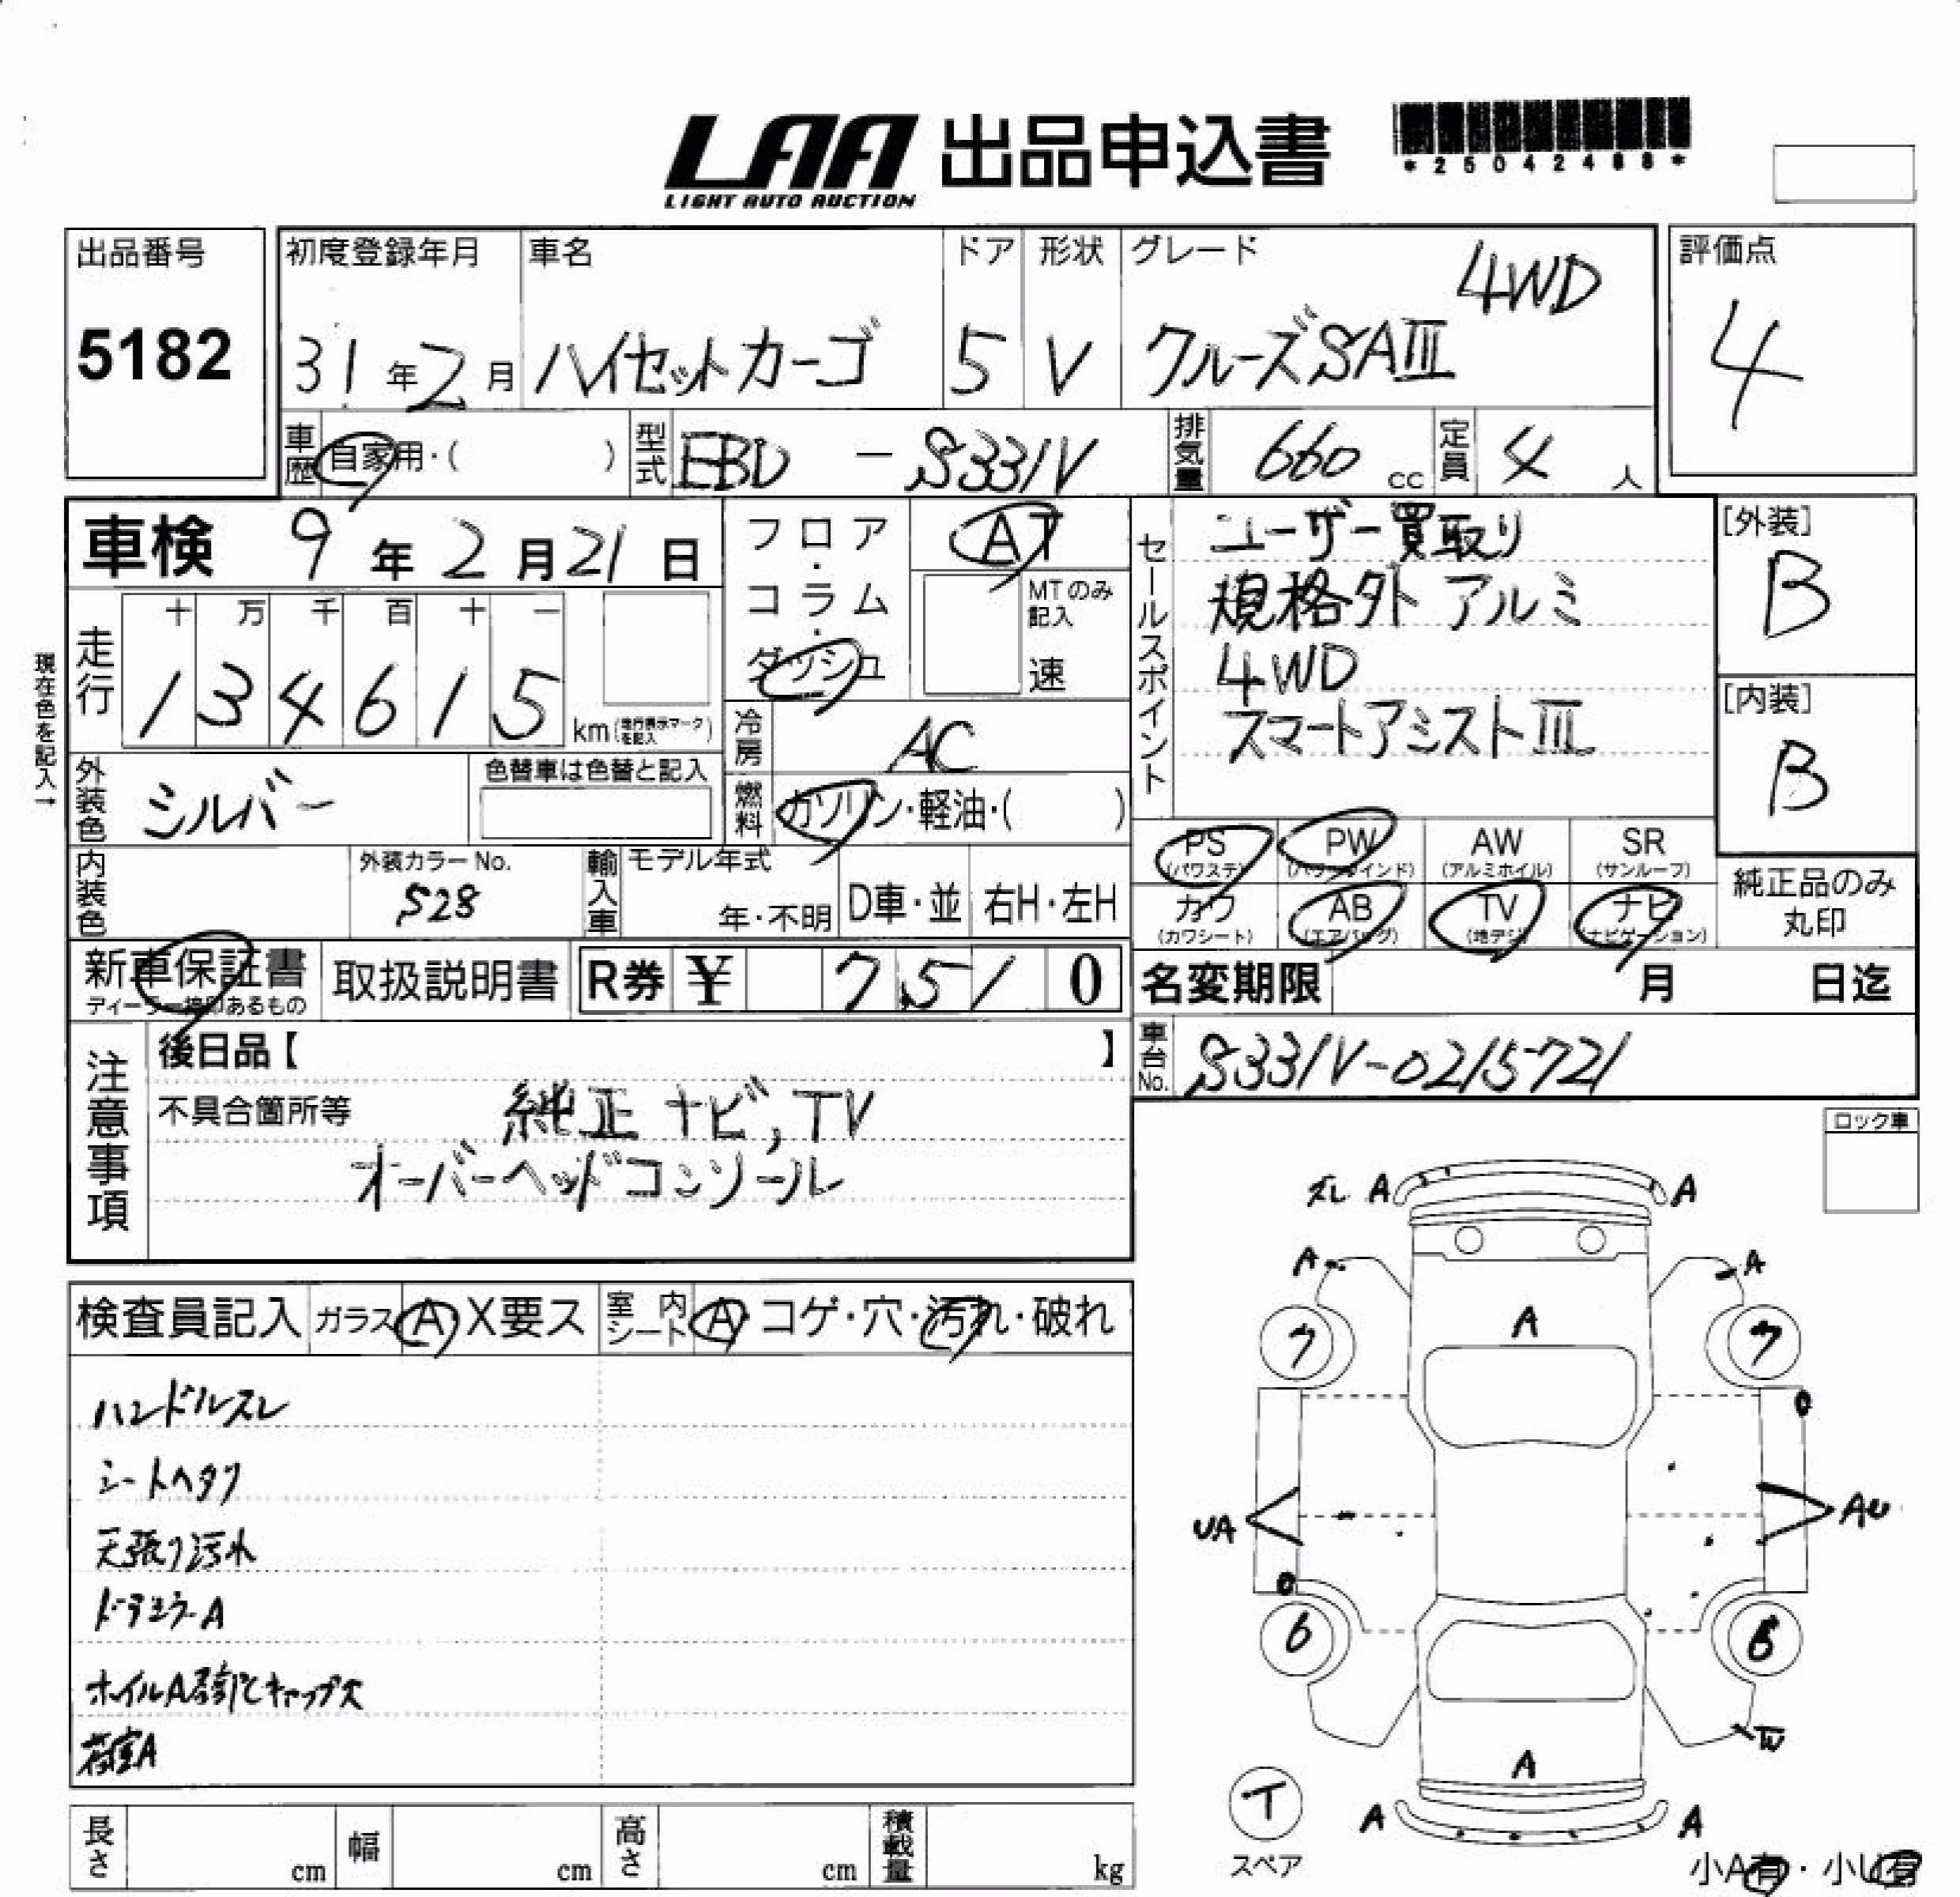 LAA 出品申込書
LIGHT AUTO AUCTION
*25042488*
出品番号 初度登録年月 車名 ドア 形状 グレード 評価点
4WD
5182 31年2月 ハイゼットカーゴ 5 V クルーズSAⅢ 4
車歴 自家用・( ) 型式 EBD - S331V 排気量 660 cc 定員 4 人
車検 9年2月21日
フロア・コラム・ダッシュ AT
MTのみ記入 速
セールスポイント
ユーザー買取り
規格外アルミ
4WD
スマートアシストⅢ
[外装] B
[内装] B
現在色を記入→
走行 十 万 千 百 十 一
1 3 4 6 1 5 km (走行表示マークを記入)
冷房 AC
外装色 シルバー 色替車は色替と記入
燃料 ガソリン・軽油・( )
PS (パワステ) PW (パワーウインド) AW (アルミホイル) SR (サンルーフ)
カワ (カワシート) AB (エアバッグ) TV (地デジ) ナビ (ナビゲーション)
純正品のみ丸印
内装色 外装カラーNo. S28 輸入車 モデル年式 年・不明 D車・並 右H・左H
新車保証書 ディーラー捺印あるもの 取扱説明書 R券 ¥ 7,51 0
名変期限 月 日迄
車台No. S331V-0215721
注意事項
後日品【 】
不具合箇所等 純正ナビ,TV
オーバーヘッドコンソール
ロック車
検査員記入 ガラス A X要ス 室内シート A コゲ・穴・汚れ・破れ
ハンドルスレ
シートヘタリ
天張り汚れ
ドアミラーA
荷室A
スレ A A
A A
A
7 7
UA AU
6 6
W
A
T
スペア
A A
小A有・小U有
長さ cm 幅 cm 高さ cm 積載量 kg